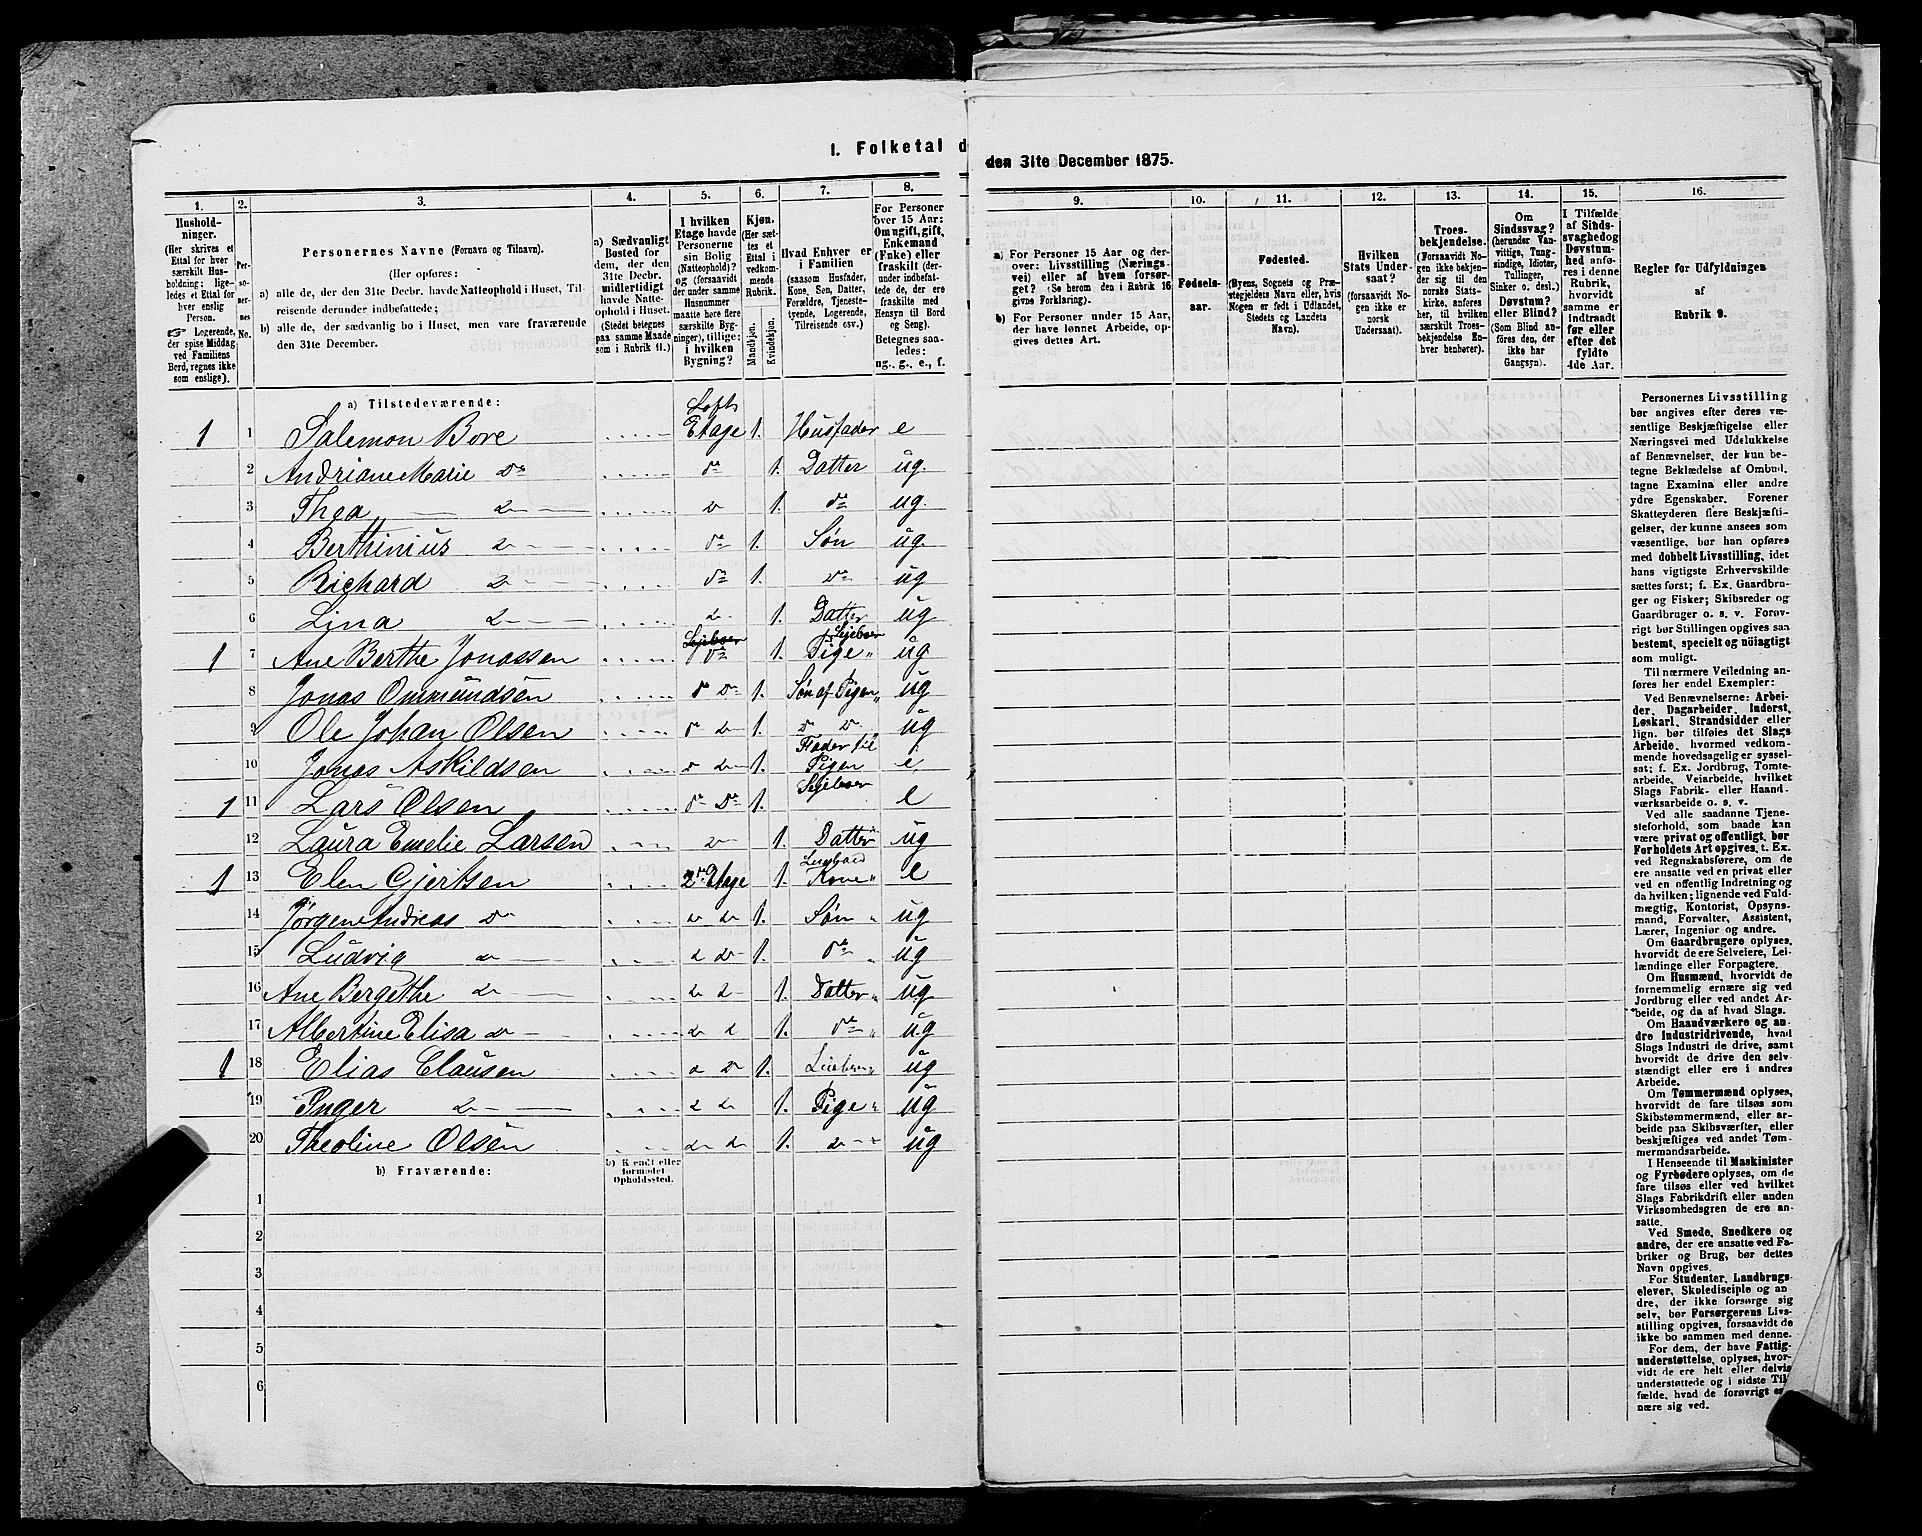 1. Folketal d
den 31te December 1875.
1.
Hushold-
ninger.
(Her skrives et
Ettal for hver
særskilt Hus-
holdning; lige-
ledes et Ettal for
hver enslig
Person.
☞ Logerende,
der spise Middag
ved Familiens
Bord, regnes ikke
som enslige).
2.
Per-
so-
ner-
nes
No.
3.
Personernes Navne (Fornavn og Tilnavn).
(Her opføres:
a) alle de, der den 31te Decbr. havde Natteophold i Huset, Til-
reisende derunder indbefattede;
b) alle de, der sædvanlig bo i Huset, men vare fraværende
den 31te December.
4.
a) Sædvanligt
Bosted for
dem, der den
31te Decbr.
midlertidigt
havde Natte-
ophold i Huset.
(Stedet betegnes
paa samme Maade
som i Rubrik 11.)
5.
I hvilken
Etage havde
Personerne
sin Bolig
(Natteophold)?
og (forsaavidt
der under samme
Husnummer
maatte høre flere
særskilte Byg-
ninger), tillige:
i hvilken
Bygning?
6.
Kjøn.
(Her sæt-
tes et
Ettal i
vedkom-
mende
Rubrik.
Mandkjøn.
Kvindekjøn.
7.
Hvad Enhver er
i Familien
(saasom Husfader,
Kone, Søn, Datter,
Forældre, Tjeneste-
tyende, Logerende,
Tilreisende osv.)
8.
For Personer
over 15 Aar:
Om ugift, gift,
Enkemand
(Enke) eller
fraskilt (der-
under indbefat-
tede de, der ere
fraskilte med
Hensyn til Bord
og Seng).
Betegnes saa-
ledes:
ug., g., e., f.
9.
a) For Personer 15 Aar og der-
over: Livsstilling (Nærings-
vei) eller af hvem forsør-
get? (Se herom den i Rubrik 16
givne Forklaring).
b) For Personer under 15 Aar,
der have lønnet Arbeide, op-
gives dettes Art.
10.
Fødsels-
aar.
11.
Fødested.
(Byens, Sognets og Præ-
stegjeldets Navn eller, hvis
Nogen er født i Udlandet,
Stedets og Landets
Navn).
12.
Hvilken
Stats Under-
saat?
(forsaavidt No-
gen ikke er
norsk
Undersaat).
13.
Troes-
bekjendelse.
(Forsaavidt No-
gen ikke bekjen-
der sig til den
norske Stats-
kirke, anføres
her, til hvilken
særskilt Troes-
bekjendelse En-
hver henhører).
14.
Om
Sindssvag?
(herunder Van-
vittige, Tung-
sindige, Idioter,
Tullinger,
Sinker o. desl.)
Døvstum?
eller Blind?
(Som Blind an-
føres den, der
ikke har
Gangsyn).
15.
I Tilfælde
af Sinds-
svaghed og
Døvstum-
hed anfø-
res i denne
Rubrik,
hvorvidt
samme er
indtraadt
før eller
efter det
fyldte
4de Aar.
16.
Regler for Udfyldningen
af
Rubrik 9.
a) Tilstedeværende:
1 1 Salemon Bore Lofts Etage 1. Husfader e
2 Andriane Marie do do 1. Datter ug.
3 Thea do do 1. do ug.
4 Berthinius do do 1. Søn ug.
5 Richard do do 1. do ug
6 Lina do do 1. Datter ug
1 7 Ane Berthe Jonassen Lejeboer do 1. Lejeboer Pige " ug
8 Jonas Ommundsen do do 1. Søn af Pigen " ug
9 Ole Johan Olsen do do 1. do do ug
10 Jonas Askildsen do do 1. Fader til Pigen e
1 11 Lars Olsen do do 1. Lejeboer e
12 Laura Emelie Larsen do 1. Datter ug
1 13 Elen Gjertsen 2den Etage 1. Kone " e
14 Jørgen Andreas do do do 1. Søn " ug
15 Ludvig do do do 1. do " ug
16 Ane Bergethe do do do 1. Datter " ug
17 Albertine Elisa do do do 1. do " ug
1 18 Elias Clausen do do 1. ug
19 Inger do do do 1. Pige " ug
20 Theoline Olsen do do 1. do ug
b) Fraværende:
b) Kjendt eller
formodet
Opholdssted.
1
2
3
4
5
6
Personernes Livsstilling
bør angives efter deres væ-
sentlige Beskjæftigelse eller
Næringsvei med Udelukkelse
af Benævnelser, der kun be-
tegne Beklædelse af Ombud,
tagne Examina eller andre
ydre Egenskaber. Forener
Skatteyderen flere Beskjæfti-
gelser, der kunne ansees som
væsentlige, bør han opføres
med dobbelt Livsstilling, idet
hans vigtigste Erhvervskilde
sættes først; f. Ex. Gaardbru-
ger og Fisker; Skibsreder og
Gaardbruger o. s. v. Forøv-
rigt bør Stillingen opgives saa
bestemt, specielt og nøiagtigt
som muligt.
Til nærmere Veiledning an-
føres her endel Exempler:
Ved Benævnelserne: Arbei-
der, Dagarbeider, Inderst,
Løskarl, Strandsidder eller
lign. bør tilføies det Slags
Arbeide, hvormed vedkom-
mende hovedsagelig er syssel-
sat; f. Ex. Jordbrug, Tomte-
arbeide, Veiarbeide, hvilket
Slags Fabrik- eller Haand-
værksarbeide o. s. v.
Ved alle saadanne Tjene-
steforhold, som baade kan
være privat og offentligt, bør
Forholdets Art opgives, t. Ex.
ved Regnskabsførere, om de
ere ansatte ved en privat eller
ved en offentlig Indretning og
da hvilken; lignende ved Fuld-
mægtig, Kontorist, Opsyns-
mand, Forvalter, Assistent,
Lærer, Ingeniør og andre.
Om Gaardbrugere oplyses,
hvorvidt de ere Selveiere, Lei-
lændinge eller Forpagtere.
Om Husmænd, hvorvidt de
fornemmelig ernære sig ved
Jordbrug eller ved andet Ar-
beide, og da af hvad Slags.
Om Haandværkere og an-
dre Industridrivende, hvad
Slags Industri de drive, samt
hvorvidt de drive den selv-
stændigt eller ere i andres
Arbeide.
Om Tømmermænd oplyses,
hvorvidt de fare tilsøs som
Skibstømmermænd, eller ar-
beide paa Skibsværfter, eller
beskjæftiges ved andet Tøm-
mermandsarbeide.
I Henseende til Maskinister
og Fyrbødere oplyses, om de
fare tilsøs eller ved hvilket
Slags Fabrikdrift eller anden
Virksomhedsgren de ere an-
satte.
Ved Smede, Snedkere og
andre, der ere ansatte ved Fa-
briker og Brug, bør dettes
Navn opgives.
For Studenter, Landbrugs-
elever, Skoledisciple og an-
dre, der ikke forsørge sig
selv, bør Forsørgerens Livs-
stilling opgives, forsaavidt de
ikke bo sammen med denne.
For dem, der have Fattig-
understøttelse, oplyses, hvor-
vidt de ere helt eller delvis
understøttede og i sidste Til-
fælde, hvad de forøvrigt er-
nære sig ved.